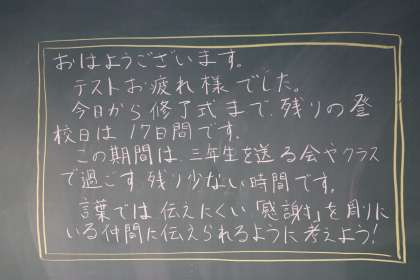 おはようございます。
テストお疲れ様でした。
今日から修了式まで、残りの登
校日は17日間です。
この期間は、三年生を送る会やクラス
で過ごす残り少ない時間です。
言葉では伝えにくい「感謝」を周りに
いる仲間に伝えられるように考えよう!